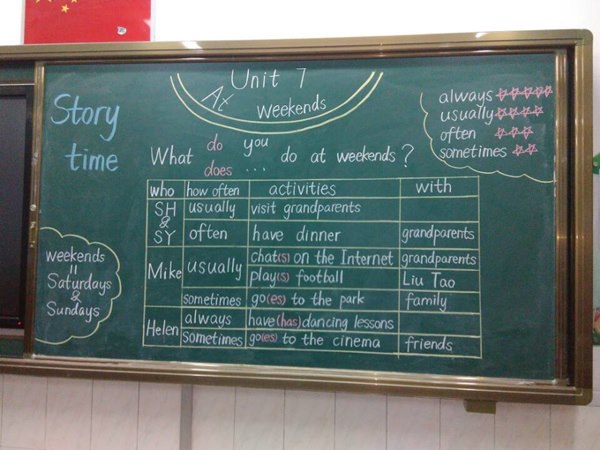 Unit 7
At weekends
Story time
always ☆☆☆☆☆
usually ☆☆☆☆
often ☆☆☆
sometimes ☆☆
What do you do at weekends?
does ...
who how often activities with
SH & SY usually visit grandparents
often have dinner grandparents
Mike usually chat(s) on the Internet grandparents
play(s) football Liu Tao
sometimes go(es) to the park family
Helen always have(has) dancing lessons
sometimes go(es) to the cinema friends
weekends
=
Saturdays
&
Sundays